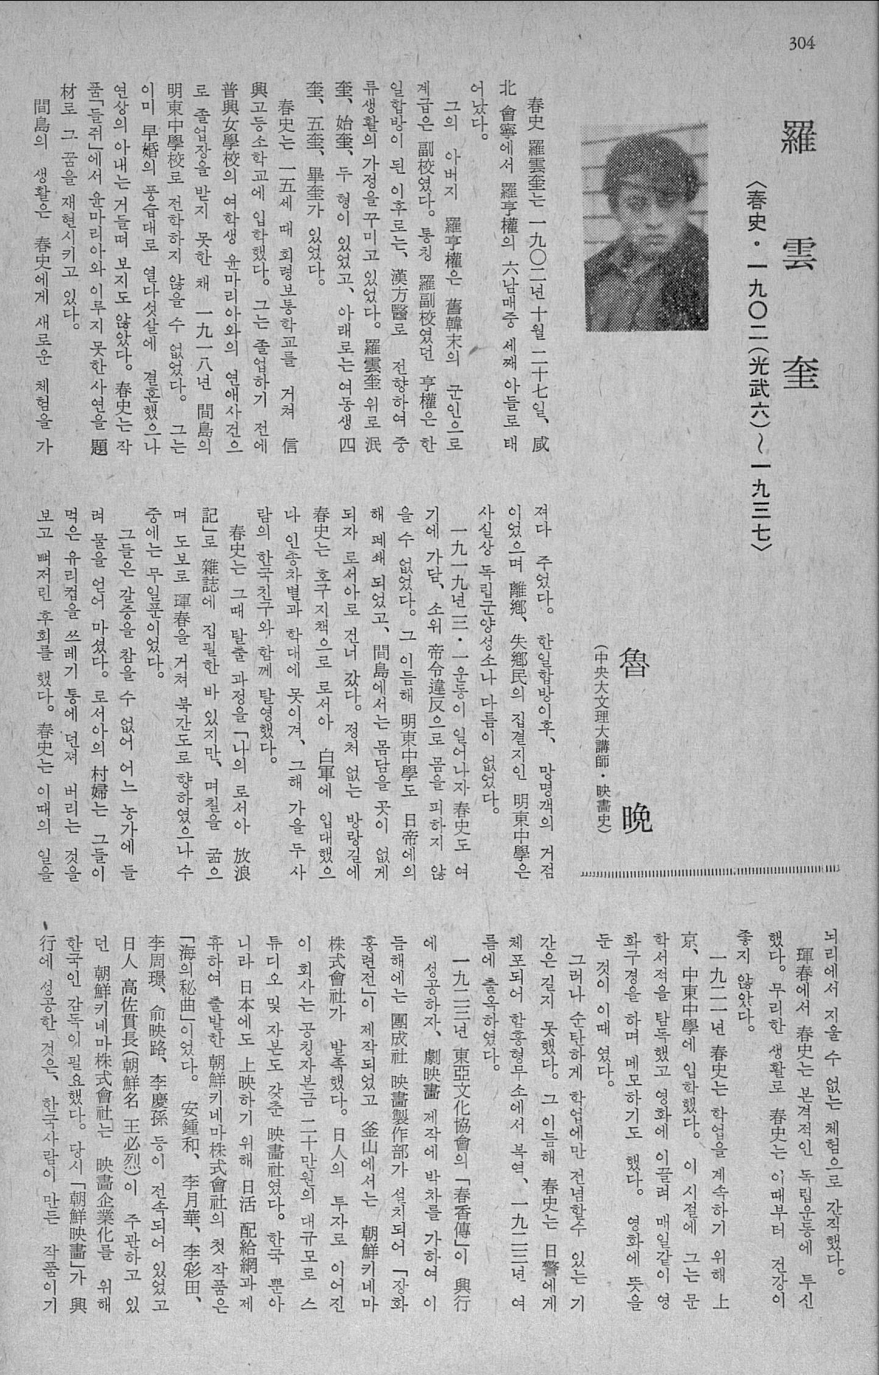 304
羅雲奎
〈春史・一九〇二(光武六)~一九三七〉
魯晩
(中央大文理大講師・映畵史)
春史 羅雲奎는 一九〇二년 十월 二十七일、咸
北 會寧에서 羅亨權의 六남매중 세째 아들로 태
어났다。
그의 아버지 羅亨權은 舊韓末의 군인으로
계급은 副校였다。통칭 羅副校였던 亨權은 한
일합방이 된 이후로는、漢方醫로 전향하여 중
류생활의 가정을 꾸미고 있었다。羅雲奎 위로 泯
奎、始奎、두 형이 있었고、아래로는 여동생 四
奎、五奎、畢奎가 있었다。
春史는 一五세 때 회령보통학교를 거쳐 信
興고등소학교에 입학했다。그는 졸업하기 전에
普興女學校의 여학생 윤마리아와의 연애사건으
로 졸업장을 받지 못한 채 一九一八년 間島의
明東中學校로 전학하지 않을 수 없었다。그는
이미 早婚의 풍습대로 열다섯살에 결혼했으나
연상의 아내는 거들떠 보지도 않았다。春史는 작
품「들쥐」에서 윤마리아와 이루지 못한 사연을 題
材로 그 꿈을 재현시키고 있다。
間島의 생활은 春史에게 새로운 체험을 가
져다 주었다。한일합방이후、망명객의 거점
이었으며 離鄕、失鄕民의 집결지인 明東中學은
사실상 독립군양성소나 다름이 없었다。
一九一九년 三・一운동이 일어나자 春史도 여
기에 가담、소위 帝令違反으로 몸을 피하지 않
을 수 없었다。그 이듬해 明東中學도 日帝에의
해 폐쇄 되었고、間島에서는 몸담을 곳이 없게
되자 로서아로 건너 갔다。정처 없는 방랑길에
春史는 호구지책으로 로서아 白軍에 입대했으
나 인종차별과 학대에 못이겨、그해 가을 두사
람의 한국친구와 함께 탈영했다。
春史는 그때 탈출 과정을「나의 로서아 放浪
記」로 雜誌에 집필한 바 있지만、며칠을 굶으
며 도보로 琿春을 거쳐 북간도로 향하였으나 수
중에는 무일푼이었다。
그들은 갈증을 참을 수 없어 어느 농가에 들
려 물을 얻어 마셨다。로서아의 村婦는 그들이
먹은 유리컵을 쓰레기 통에 던져 버리는 것을
보고 뼈저린 후회를 했다。春史는 이때의 일을
뇌리에서 지울 수 없는 체험으로 간직했다。
琿春에서 春史는 본격적인 독립운동에 투신
했다。무리한 생활로 春史는 이때부터 건강이
좋지 않았다。
一九二一년 春史는 학업을 계속하기 위해 上
京、中東中學에 입학했다。이 시절에 그는 문
학서적을 탐독했고 영화에 이끌려 매일같이 영
화구경을 하며 메모하기도 했다。영화에 뜻을
둔 것이 이때 였다。
그러나 순탄하게 학업에만 전념할수 있는 기
간은 길지 못했다。그 이듬해 春史는 日警에게
체포되어 함흥형무소에서 복역、一九二三년 여
름에 출옥하였다。
一九二三년 東亞文化協會의「春香傳」이 興行
에 성공하자、劇映畵 제작에 박차를 가하여 이
듬해에는 團成社 映畵製作部가 설치되어「장화
홍련전」이 제작되었고 釜山에서는 朝鮮키네마
株式會社가 발족했다。日人의 투자로 이어진
이 회사는 공칭자본금 二十만원의 대규모로 스
튜디오 및 자본도 갖춘 映畵社였다。한국 뿐아
니라 日本에도 上映하기 위해 日活 配給網과 제
휴하여 출발한 朝鮮키네마株式會社의 첫 작품은
「海의秘曲」이었다。安鍾和、李月華、李彩田、
李周璟、俞映路、李慶孫 등이 전속되어 있었고
日人 高佐貫長(朝鮮名 王必烈)이 주관하고 있
던 朝鮮키네마株式會社는 映畵企業化를 위해
한국인 감독이 필요했다。당시「朝鮮映畵」가 興
行에 성공한 것은、한국사람이 만든 작품이기